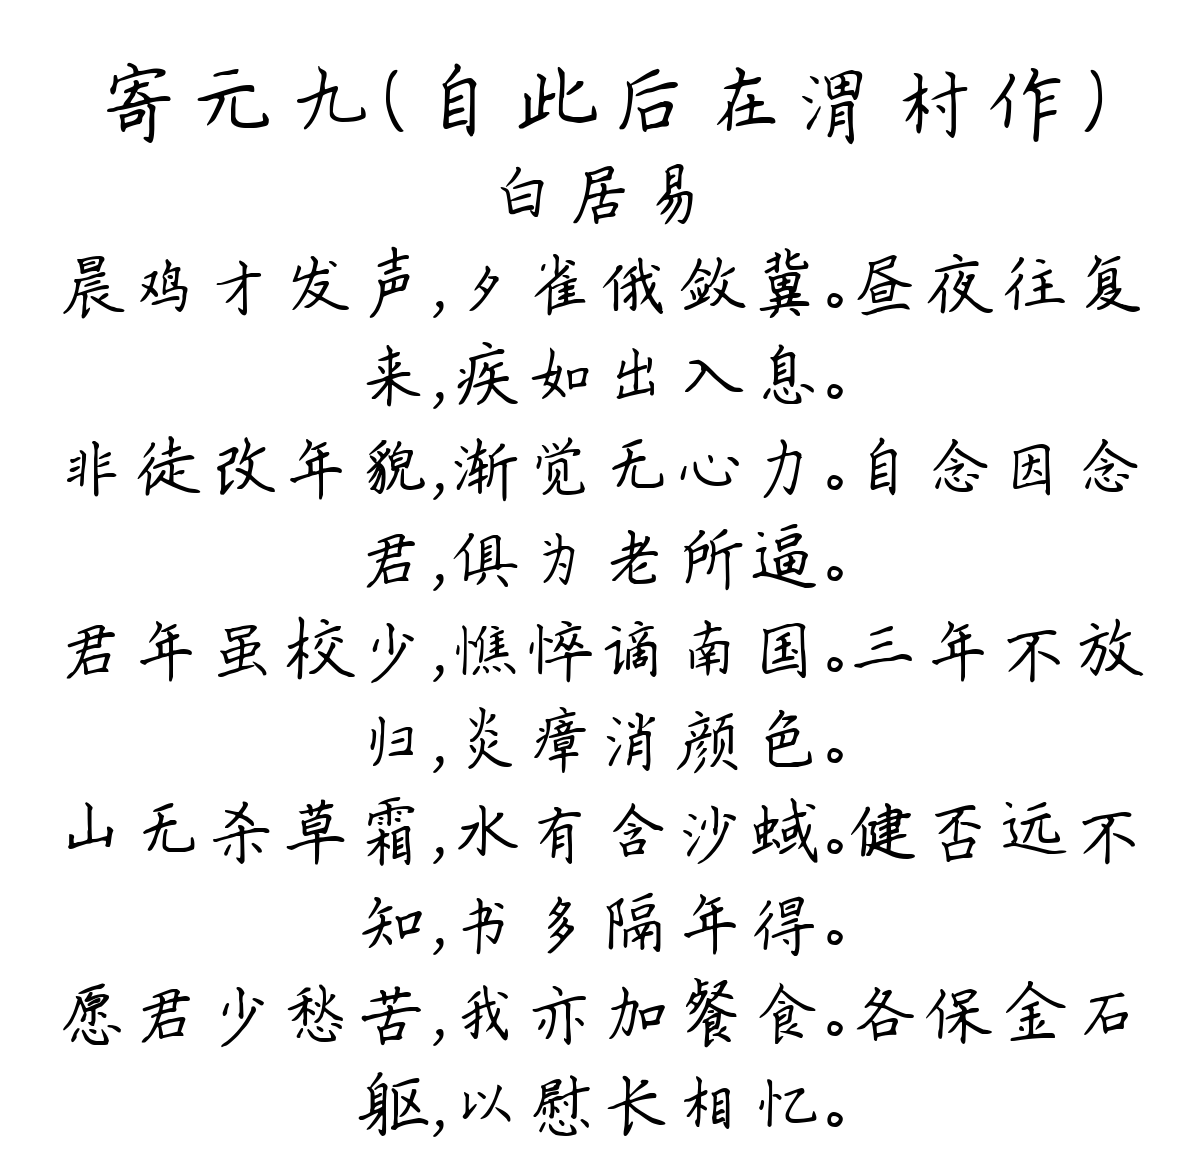 寄元九(自此后在渭村作)
白居易
晨鸡才发声,夕雀俄敛冀。昼夜往复
来,疾如出入息。
非徒改年貌,渐觉无心力。自念因念
君,俱为老所逼。
君年虽校少,憔悴谪南国。三年不放
归,炎瘴消颜色。
山无杀草霜,水有含沙蜮。健否远不
知,书多隔年得。
愿君少愁苦,我亦加餐食。各保金石
躯,以慰长相忆。